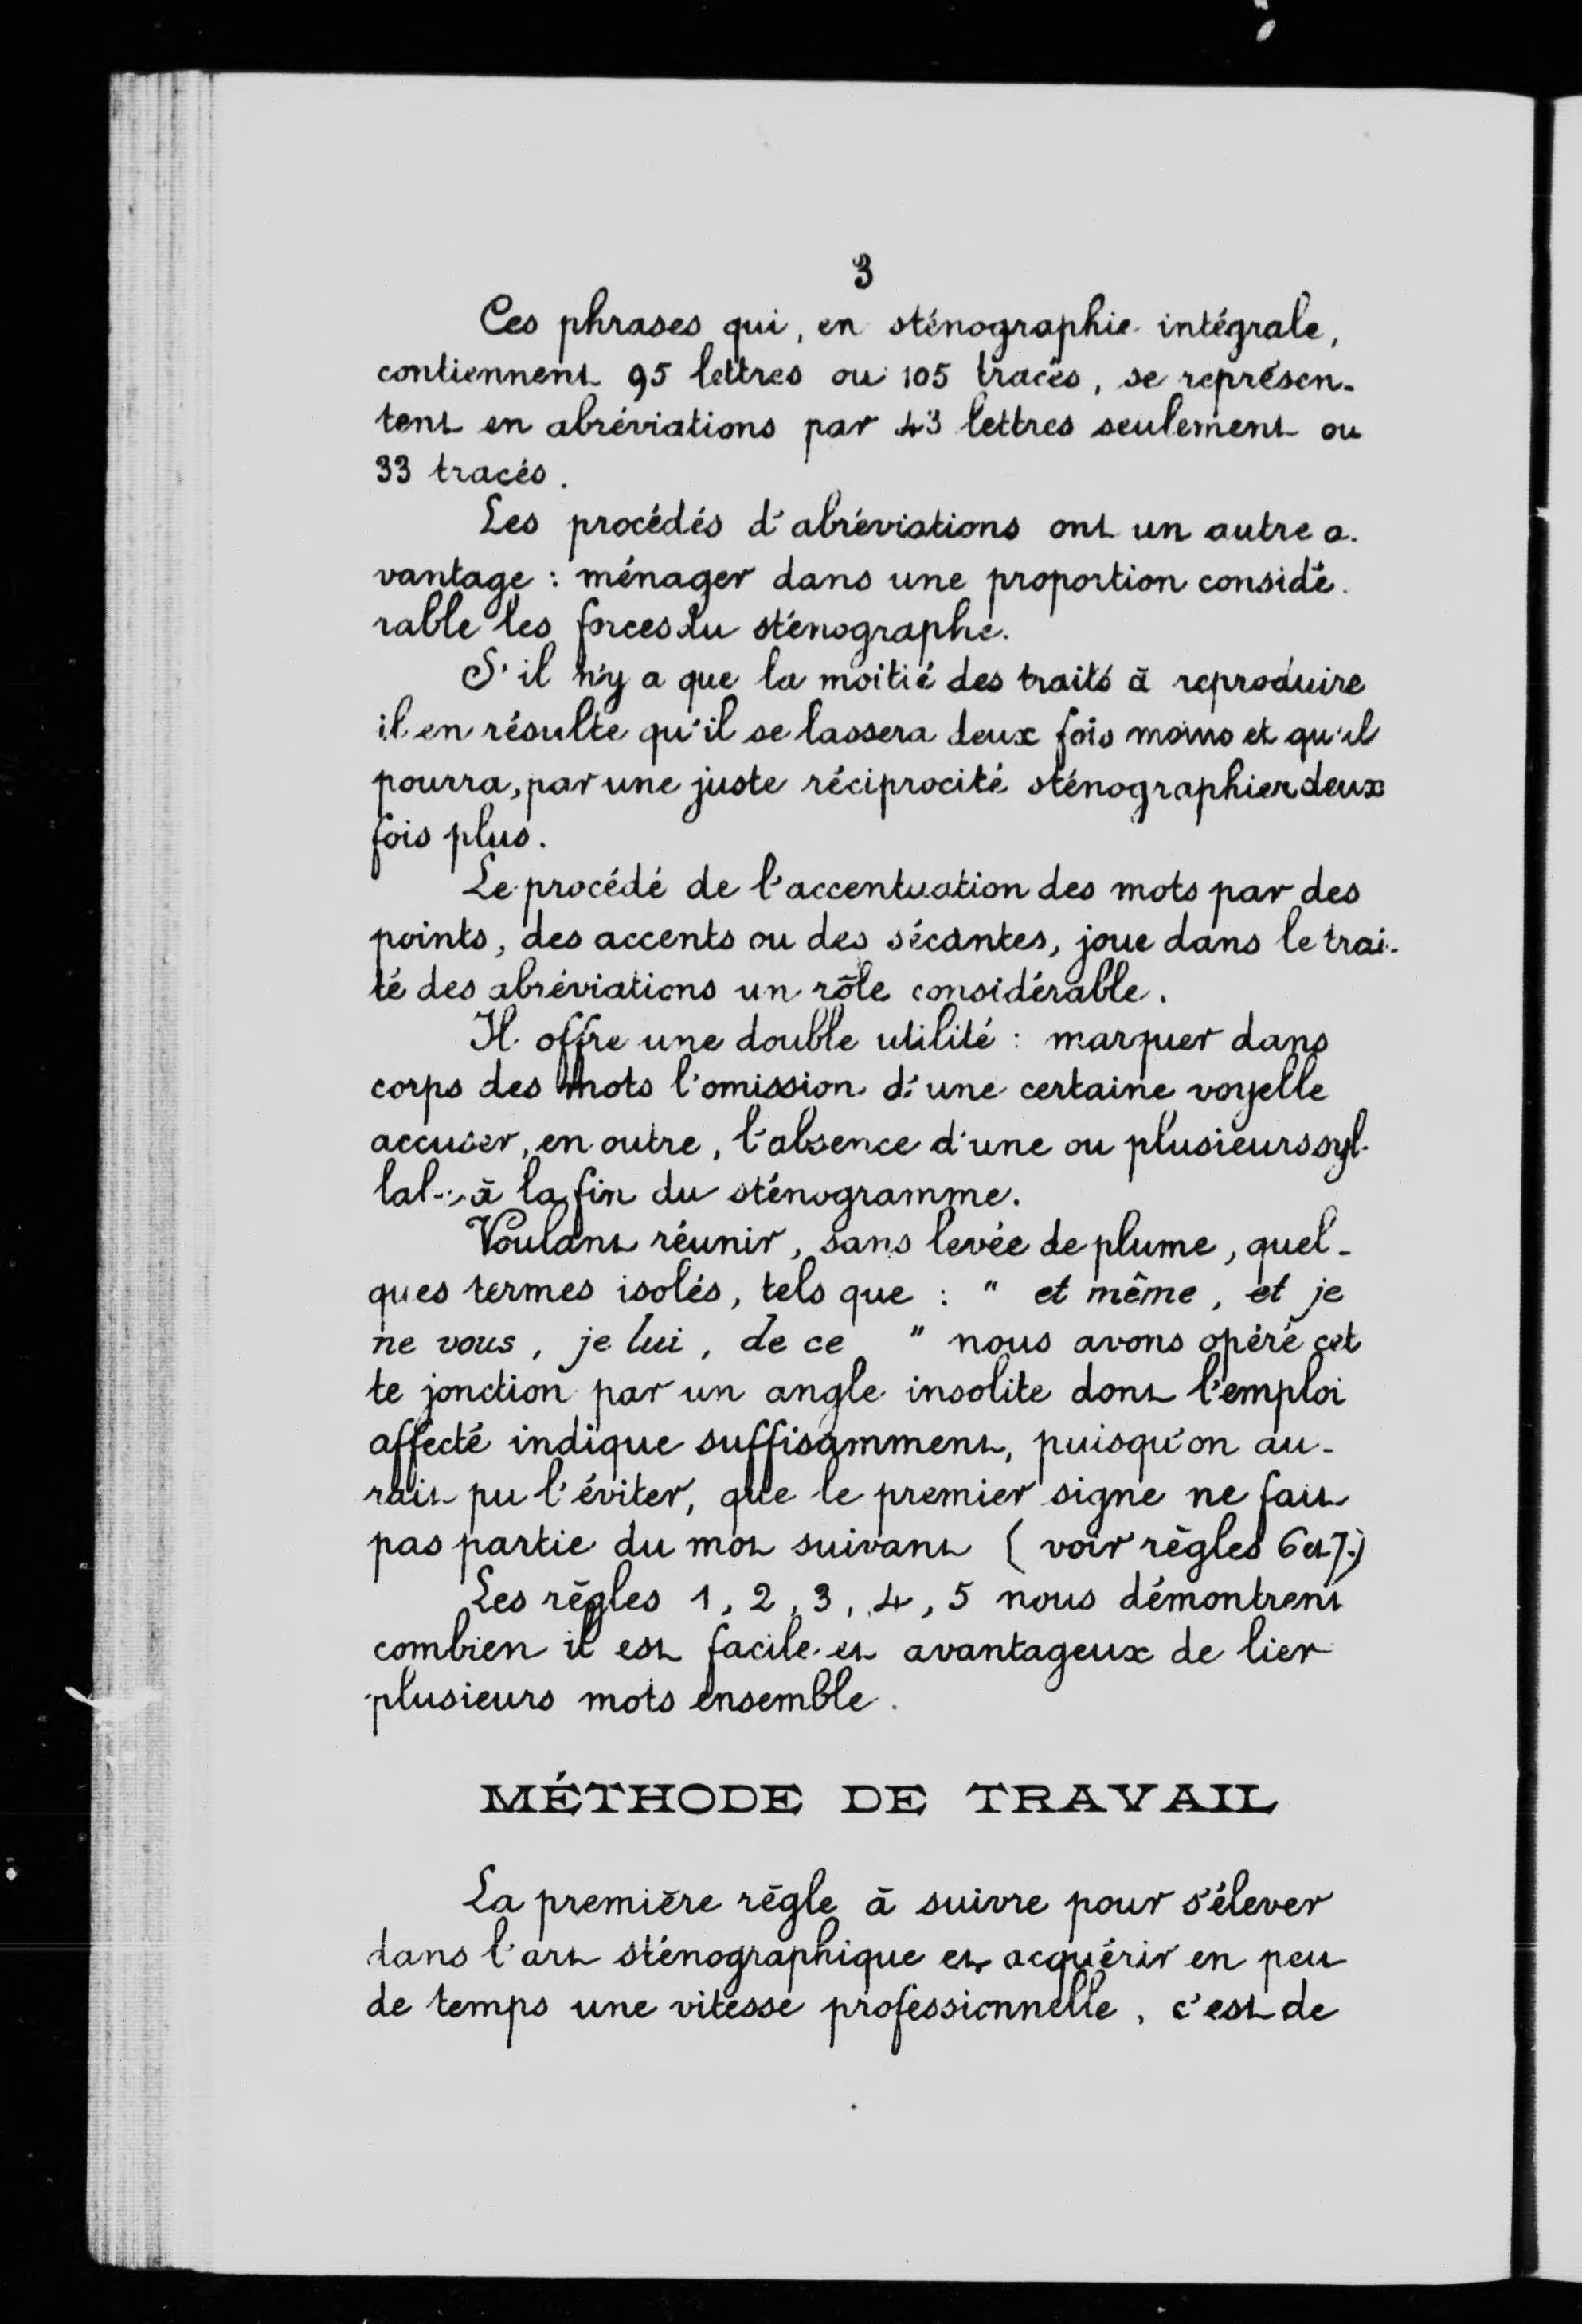 3
Ces phrases qui, en sténographie intégrale,
contiennent 95 lettres ou 105 tracés, se représen-
tent en abréviations par 43 lettres seulement ou
33 tracés.
Les procédés d'abréviations ont un autre a-
vantage : ménager dans une proportion considé-
rable les forces du sténographe.
S'il n'y a que la moitié des traits à reproduire
il en résulte qu'il se lassera deux fois moins et qu'il
pourra, par une juste réciprocité sténographier deux
fois plus.
Le procédé de l'accentuation des mots par des
points, des accents ou des sécantes, joue dans le trai-
té des abréviations un rôle considérable.
Il offre une double utilité : marquer dans
corps des mots l'omission d'une certaine voyelle
accuser, en outre, l'absence d'une ou plusieurs syl-
à la fin du sténogramme.
Voulant réunir, sans levée de plume, quel-
ques termes isolés, tels que : " et même, et je
ne vous, je lui, de ce " nous avons opéré cet
te jonction par un angle insolite dont l'emploi
affecté indique suffisamment, puisqu'on au-
rait pu l'éviter, que le premier signe ne fait
pas partie du mot suivant ( voir règles 6 et 7.)
Les règles 1, 2, 3, 4, 5 nous démontrent
combien il est facile et avantageux de lier
plusieurs mots ensemble.
MÉTHODE DE TRAVAIL
La première règle à suivre pour s'élever
dans l'art sténographique et acquérir en peu
de temps une vitesse professionnelle, c'est de